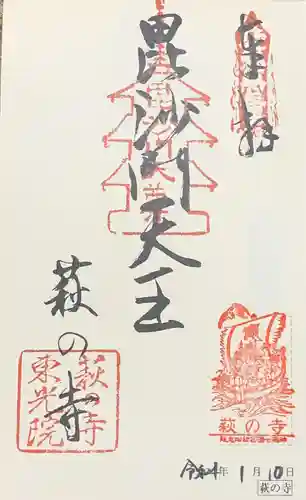 奉拝
毘沙門天王
萩の寺
萩の寺
東光院
萩の寺
令和4年 1月10日
萩の寺